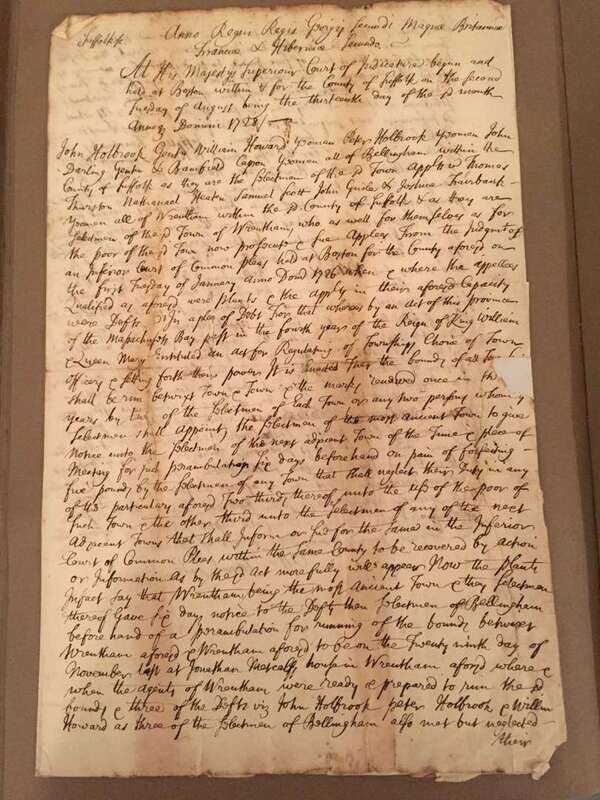 Suffolk ss Anno Regni Regis Georgij Secundi Magnæ Britanniæ
Franciæ & Hiberniæ Secundo
At His Majestys Superiour Court of Judicature begun and
held at Boston within & for the County of Suffolk on the Second
Tuesday of August being the thirteenth day of the sd month
Annoq Domini 1728/
John Holbrook Gentn William Howard yeoman Peter Holbrook yeoman John
Darling Gentn & Banfield Capron yeomen all of Bellingham within the
County of Suffolk as they are the Selectmen of the sd Town Applts Thomas
Thurston Nathanael Heaton Samuel Scott John Guild & Joshua Fairbank
yeomen all of Wrentham within the sd County of Suffolk & as they are
Selectmen of the sd Town of Wrentham, who as well for themselves as for
the poor of the sd Town now prosecute & sue Appees From the Judgmt of
an Inferior Court of Common pleas held at Boston for the County aforesd on
the first Tuesday of January Anno Domi 1726 when & where the appellees
Qualified as aforesd were plants & the applts in theirs aforesd Capacity
were Defts In a plea of Debt For that whereas by an Act of this Province
of the Massachusets Bay past in the fourth years of the Reign of King William
& Queen Mary Intituled an act for Regulating of Townships Choice of Town
officers & setting forth their powers It is Enacted That the bounds of all
shall be run betwixt Town & Town & the marks renewed once in
years by two of the Selectmen of Each Town or any two persons whom ye
Selectmen shall appoint, the Selectmen of the most ancient Town to give
Notice unto the Selectmen of the next adjacent Town of the Time & place of
Meeting for such perambulation Six days beforehand on pain of forfeiting
five pounds by the Selectmen of any Town that shall neglect their Duty in any
of the particulars aforesd Two thirds thereof unto the use of the poor of
such Town & the other third unto the Selectmen of any of the next
Adjacent Towns that shall Inform or sue for the same in the Inferior
Court of Common Pleas within the same County to be recovered by action
or Information As by the sd Act more fully will appear Now the plants
In fact say that Wrentham being the most Ancient Town & they Selectmen
thereof Gave six days notice to the Defts then Selectmen of Bellingham
before hand of a perambulation for running of the bounds betwixt
Wrentham aforesd & Wrentham aforesd to be on the Twenty ninth day of
November last at Jonathan Metcalfs house in Wrentham aforesd where &
when the agents of Wrentham were ready & prepared to run the sd
bounds & three of the Defts viz John Holbrook Peter Holbrook & Willm
Howard as three of the Selectmen of Bellingham also met but neglected
their